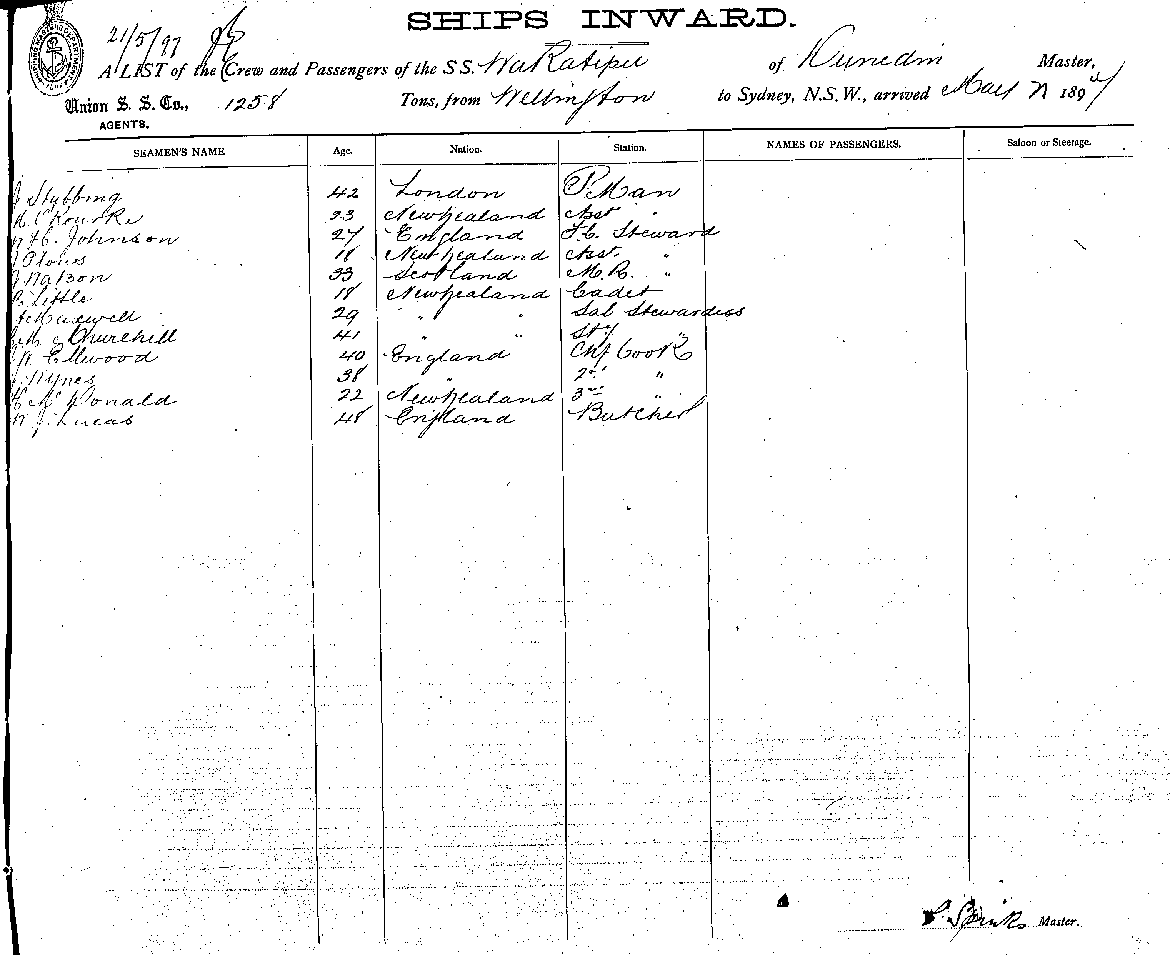 SHIPS INWARD.
21/5/97
A LIST of the Crew and Passengers of the S.S. Wakatipu of Dunedin Master,
Union S. S. Co., 1258 Tons, from Wellington to Sydney, N.S.W., arrived May 1897
AGENTS.
SEAMEN'S NAME Age. Nation. Station. NAMES OF PASSENGERS. Saloon or Steerage.
J Stubbing 42 London P. Man
O'Rourke 23 New Zealand Asst "
Johnson 27 England F.C. Steward
18 New Zealand Asst. "
J Watson 33 Scotland M.R. "
Little 18 New Zealand Cadet
Maxwell 29 " " Sal Stewardess
Churchill 41 " " "
Ellwood 40 England Chf Cook
38 " 2nd "
McDonald 22 New Zealand 3rd "
W J. Lucas 48 England Butcher
Spinks Master.